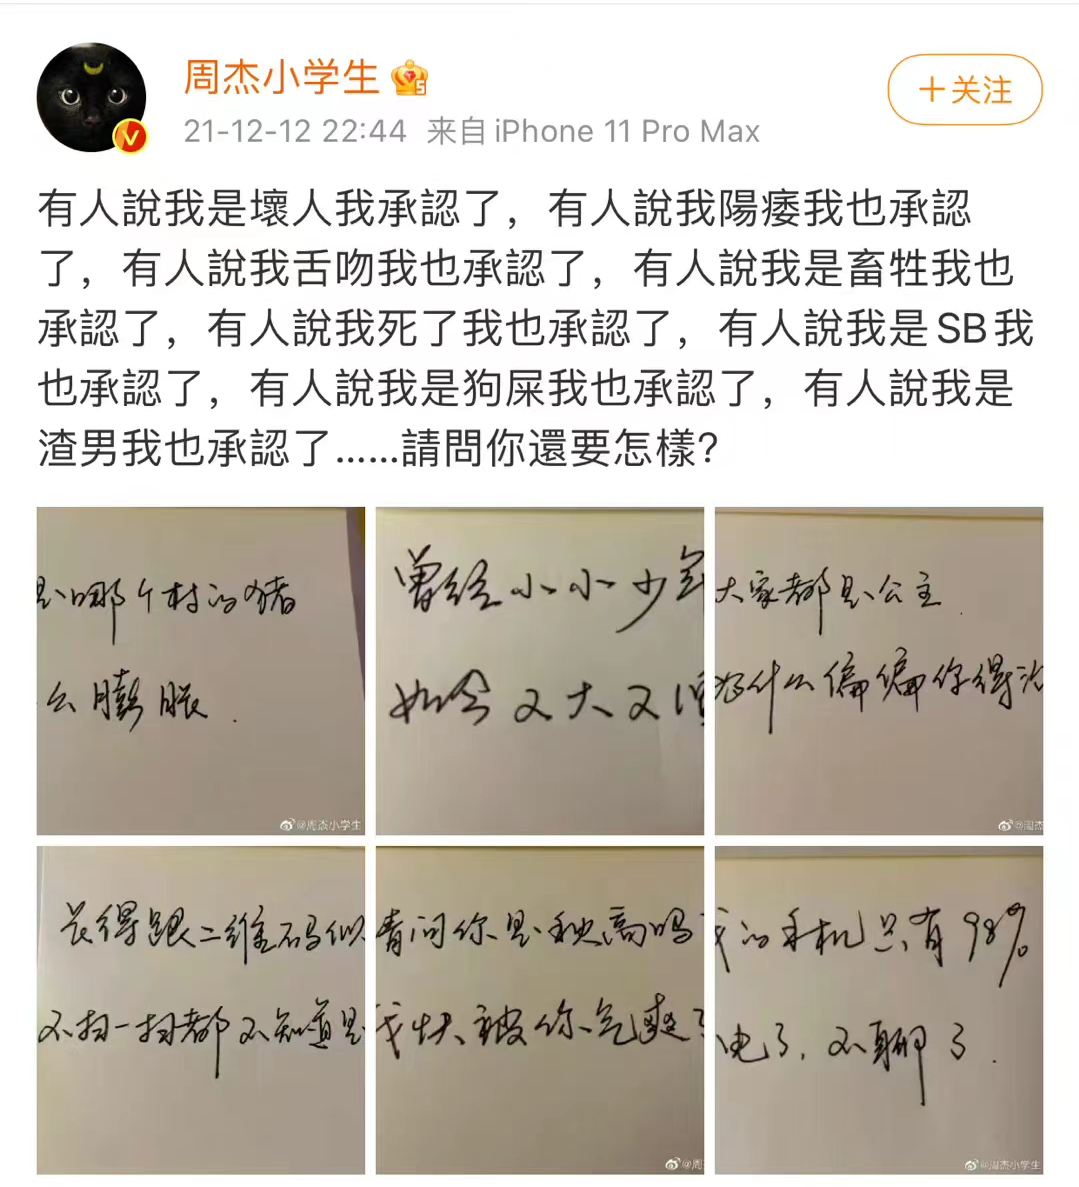 周杰小学生
+关注
21-12-12 22:44 来自 iPhone 11 Pro Max
有人說我是壞人我承認了，有人說我陽痿我也承認
了，有人說我舌吻我也承認了，有人說我是畜牲我也
承認了，有人說我死了我也承認了，有人說我是SB我
也承認了，有人說我是狗屎我也承認了，有人說我是
渣男我也承認了……請問你還要怎樣？
是哪个村的猪
么膨胀.
@周杰小学生
曾经小小少年
如今又大又
大家都是公主
为什么偏偏你得
@周杰
长得跟二维码似
不扫一扫都不知道是
请问你是秋高吗
我快被你气爽了
@周
我的手机只有98%
电了，不聊了.
@周杰小学生